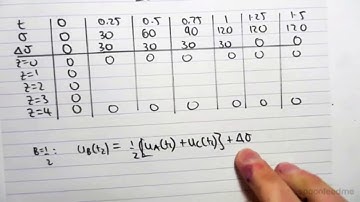 t 0 0.25 0.5 0.75 1 1.25 1.5
σ 0 30 60 90 120 120 120
Δσ 0 30 30 30 30 0 0
z=0 0 0 0 0 0 0 0
z=1 0
z=2 0
z=3 0
z=4 0 0 0 0 0 0 0
B=1/2: u_B(t_2) = 1/2{u_A(t_1) + u_C(t_1)} + Δσ